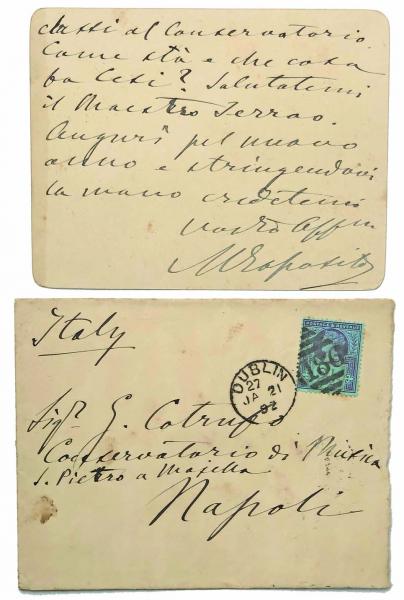 dassi al Conservatorio.
Come stà e che cosa
fa Cesi? Salutatemi
il Maestro Serrao.
Augurî pel nuovo
anno e stringendovi
la mano credetemi
vostro Affmo
M Esposito
Italy
POSTAGE & REVENUE
186
DUBLIN
27
JA 21
92
Sigr. G. Cotrufo
Conservatorio di Musica
S. Pietro a Majella
Napoli